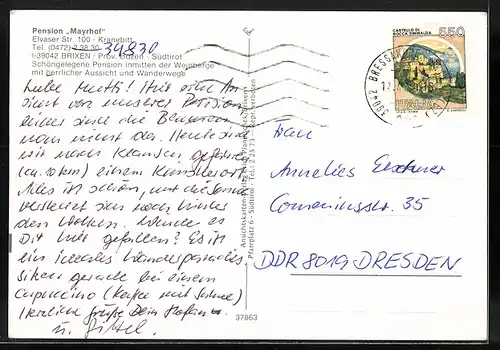 Pension „Mayrhof"
Elvaser Str. 100 - Kranebitt
Tel. (0472) 2 38 30 34830
I-39042 BRIXEN / Prov. Bozen - Südtirol
Schöngelegene Pension inmitten der Weinberge
mit herrlicher Aussicht und Wanderwege
Liebe Mutti! Hier eine An
sicht von unserer Pension
leider sind die Blumen
noch nicht da. Heute sind
wir nach Klausen gefahren
(ca. 10 km) einem Künstlerort.
Alles ist schön, nur die Sonne
versteckt sich noch hinter
den Wolken. Würde es
Dir hier gefallen? Es ist
ein ideales Wanderparadies
sitzen gerade bei einem
Cappuccino (Kaffee mit Sahne)
Herzliche Grüße Dein
u.
Ansichtskarten
Pfarrplatz 6 - Südtirol - Tel.
37863
CASTELLO DI
ROCCA SINIBALDA
550
ITALIA
39042 BRESSANONE
Frau
Annelies
Comeniusstr. 35
DDR 8019 DRESDEN